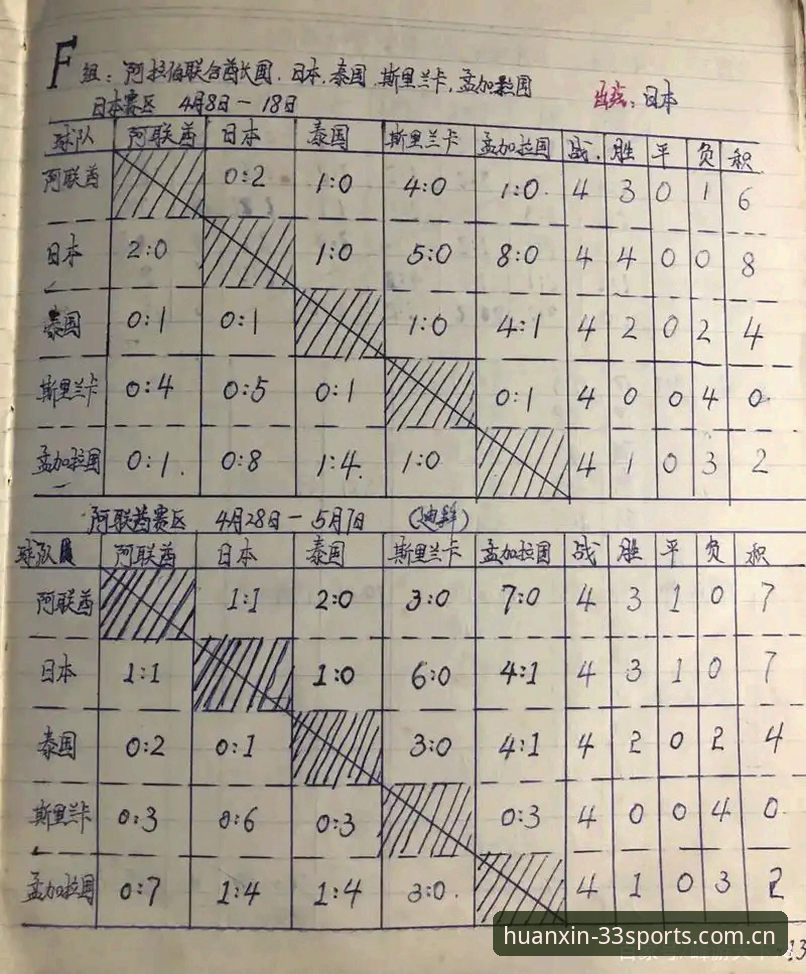 F组：阿拉伯联合酋长国、日本、泰国、斯里兰卡、孟加拉国
出线：日本
日本赛区 4月8日－18日
球队 阿联酋 日本 泰国 斯里兰卡 孟加拉国 战 胜 平 负 积
阿联酋 0:2 1:0 4:0 1:0 4 3 0 1 6
日本 2:0 1:0 5:0 8:0 4 4 0 0 8
泰国 0:1 0:1 1:0 4:1 4 2 0 2 4
斯里兰卡 0:4 0:5 0:1 0:1 4 0 0 4 0
孟加拉国 0:1 0:8 1:4 1:0 4 1 0 3 2
阿联酋赛区 4月28日－5月7日 （迪拜）
球队 阿联酋 日本 泰国 斯里兰卡 孟加拉国 战 胜 平 负 积
阿联酋 1:1 2:0 3:0 7:0 4 3 1 0 7
日本 1:1 1:0 6:0 4:1 4 3 1 0 7
泰国 0:2 0:1 3:0 4:1 4 2 0 2 4
斯里兰卡 0:3 0:6 0:3 0:3 4 0 0 4 0
孟加拉国 0:7 1:4 1:4 3:0 4 1 0 3 2
huanxin-33sports.com.cn
13